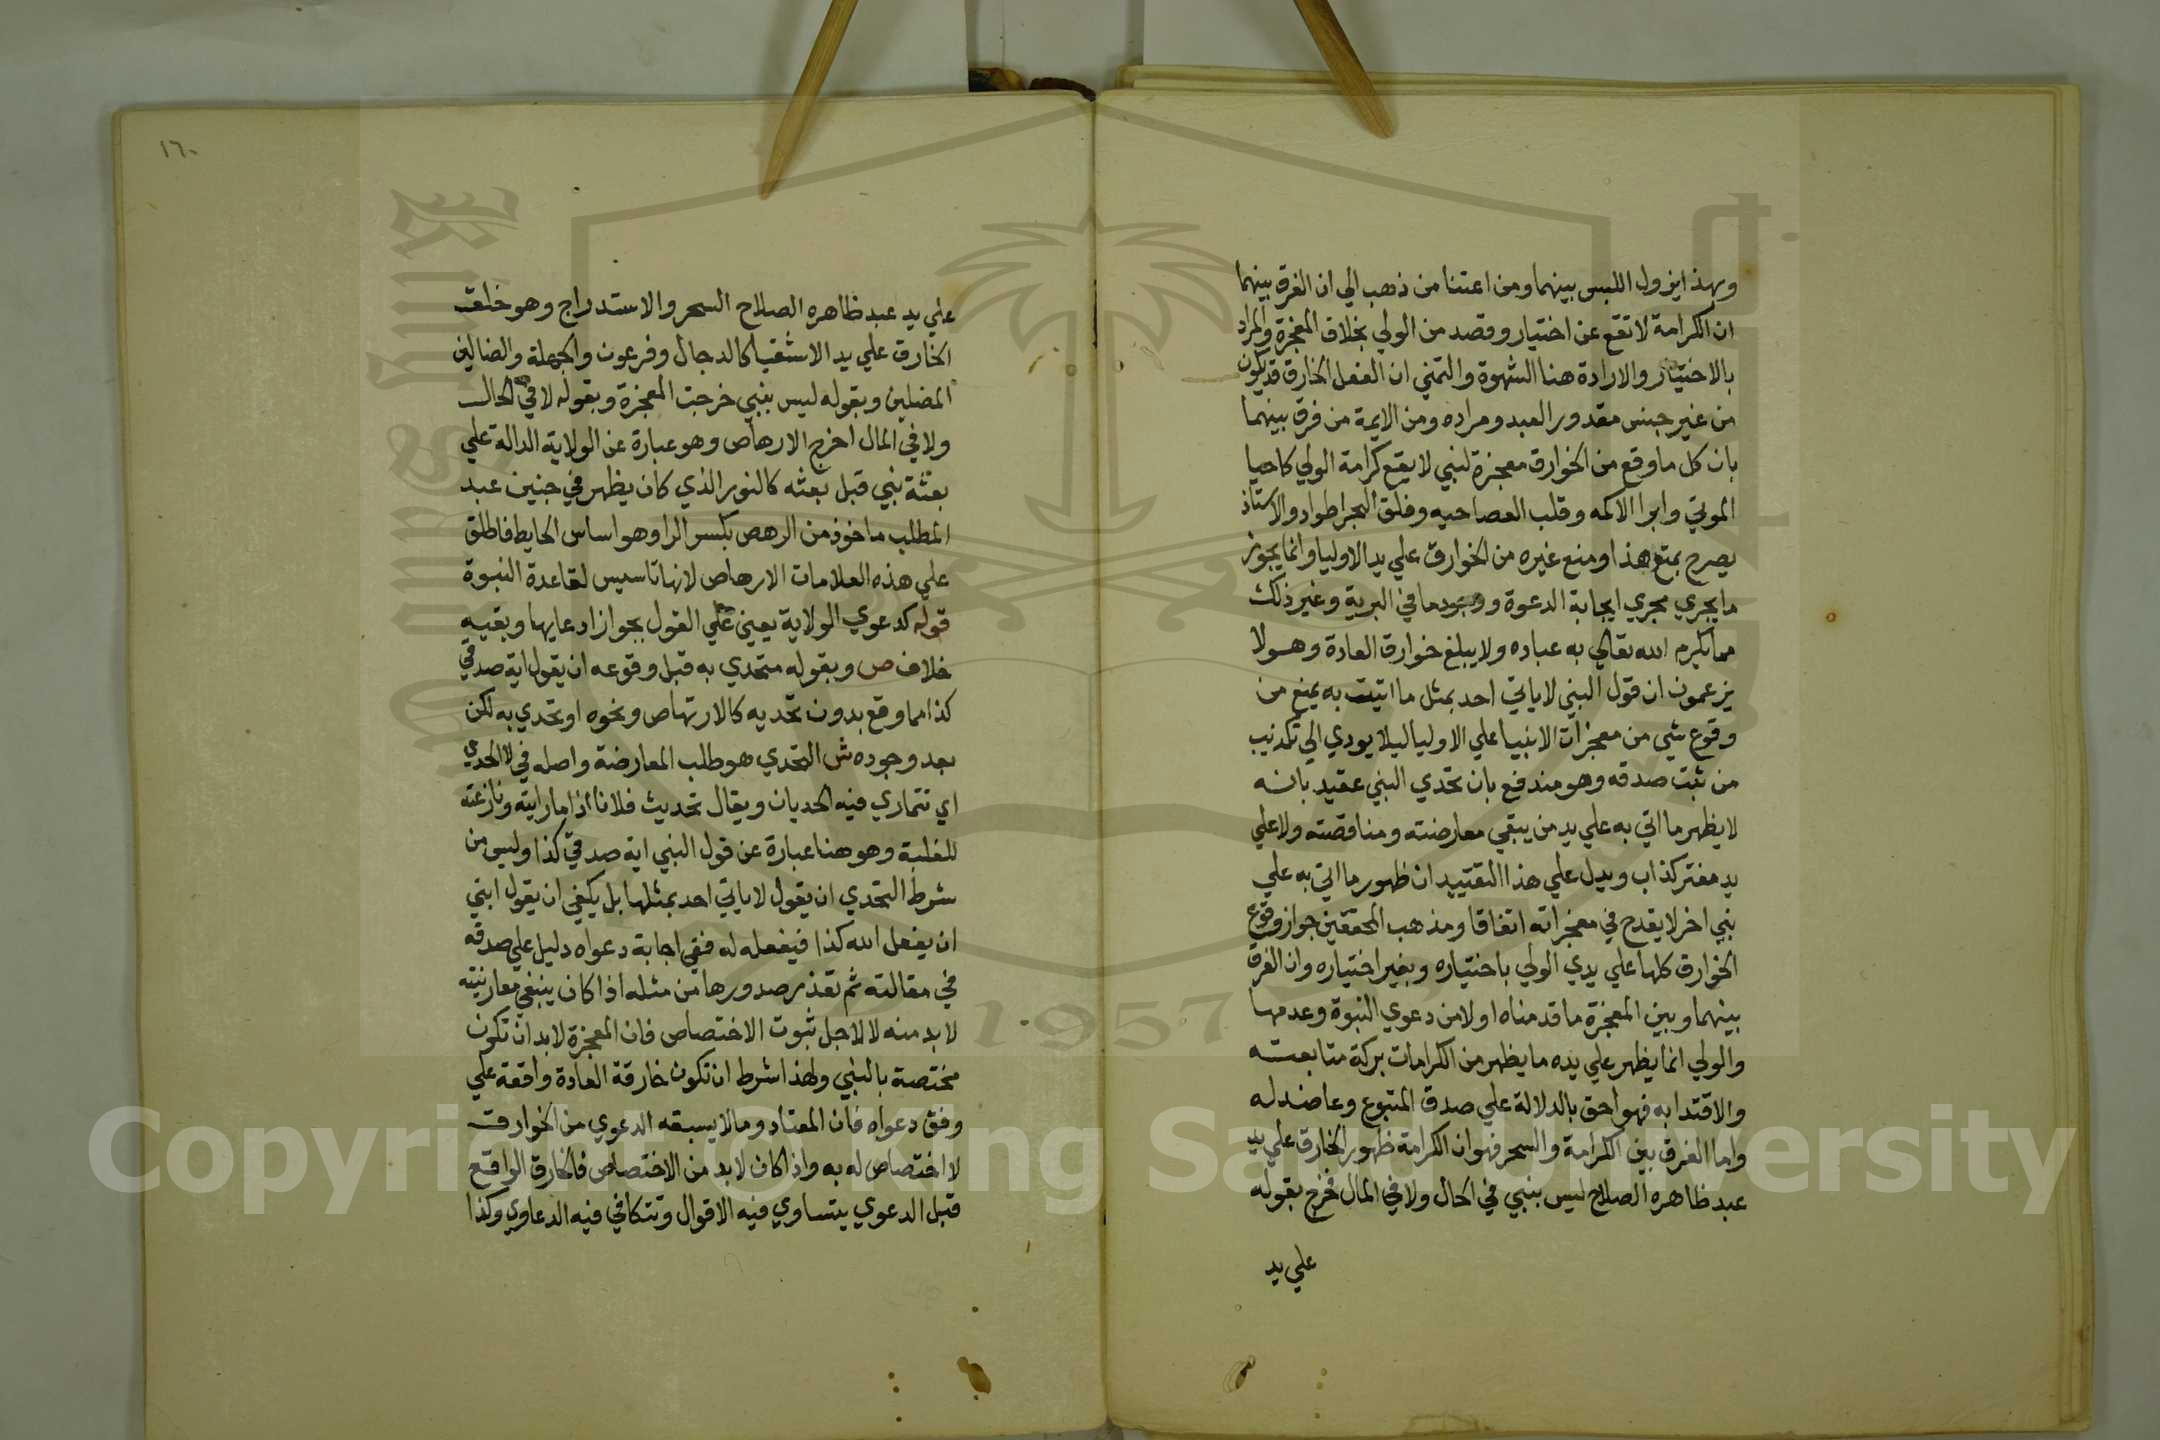 وبهذا يزول اللبس بينهما ومن اعتنا من ذهب الي ان الفرق بينهما
ان الكرامة لا تقع عن اختيار وقصد من الولي بخلاف المعجزة والمراد
بالاختيار والارادة هنا الشهوة والتمني ان الفعل الخارق قد يكون
من غير جنس مقدور العبد ومراده ومن الايمة من فرق بينهما
بان كل ما وقع من الخوارق معجزة لنبي لا يقع كرامة الولي كاحيا
الموتي وابرا الاكمه وقلب العصا حيه وفلق البحر اطواد والاستاذ
يصرح بمنع هذا ومنع غيره من الخوارق علي يد الاوليا وانما يجوز
ما يجري مجري ايجابة الدعوة ووجود ما في البرية وغير ذلك
مما يكرم الله تعالي به عباده ولا يبلغ خوارق العادة وهولا
يزعمون ان قول النبي لا ياتي احد بمثل ما اتيت به يمنع من
وقوع شي من معجزات الانبيا علي الاوليا ليلا يودي الي تكذيب
من ثبت صدقه وهو مندفع بان تحدي النبي عقيد بانه
لا يظهر ما اتي به علي يد من يبقي معارضته ومناقضته ولا علي
يد مفتر كذاب ويدل علي هذا التقييد ان ظهور ما اتي به علي
نبي اخر لا يقدح في معجزاته اتفاقا ومذهب المحققين جواز وقوع
الخوارق كلها علي يدي الولي باختياره وبغير اختياره وان الفرق
بينهما وبين المعجزة ما قدمناه اولا من دعوي النبوة وعدمها
والولي انما يظهر علي يده ما يظهر من الكرامات بركة متابعته
والاقتدا به فهو احق بالدلالة علي صدق المتبوع وعاضد له
واما الفرق بين الكرامة والسحر فهو ان الكرامة ظهور الخارق علي يد
عبد ظاهره الصلاح ليس بنبي في الحال ولا في المال فخرج بقوله
علي يد
١٦٠
علي يد عبد ظاهره الصلاح السحر والاستدراج وهو خلق
الخارق علي يد الاشقيا كالدجال وفرعون والجهلة والضالين
المضلين وبقوله ليس بنبي خرجت المعجزة وبقوله لا في الحال
ولا في المال اخرج الارهاص وهو عبارة عن الولاية الدالة علي
بعثة نبي قبل بعثه كالنور الذي كان يظهر في جنين عبد
المطلب ماخوذ من الرهص بكسر الرا وهو اساس الحايط فاطلق
علي هذه العلامات الارهاص لانها تاسيس لقاعدة النبوة
قوله كدعوي الولاية يعني علي القول بجواز ادعايها وبقيه
خلاف ص وبقوله متحدي به قبل وقوعه ان يقول اية صدقي
كذا مما وقع بدون تحديه كالارتهاص ونحوه او تحدي به لكن
بعد وجوده ش التحدي هو طلب المعارضة واصله في الحدي
اي تتماري فيه الحديان ويقال تحديث فلانا اذا مارايته ونازعته
للغلبة وهو هنا عبارة عن قول النبي اية صدقي كذا وليس من
شرط التحدي ان يقول لا ياتي احد بمثلها بل يكفي ان يقول ايتي
ان يفعل الله كذا فيفعله له ففي اجابة دعواه دليل علي صدقه
في مقالته ثم تعذر صدورها من مثله اذا كان ينبغي معارنيته
لا بد منه لا لاجل ثبوت الاختصاص فان المعجزة لا بد ان تكون
مختصة بالنبي ولهذا اشرط ان تكون خارقة العادة واقعة علي
وفق دعواه فان المعتاد وما لا يسبقه الدعوي من الخوارق
لا اختصاص له به واذا كان لا بد من الاختصاص فالخارق الواقع
قبل الدعوي يتساوي فيه الاقوال وتتكافي فيه الدعاوي وكذا
Copyright © King Saud University
1957